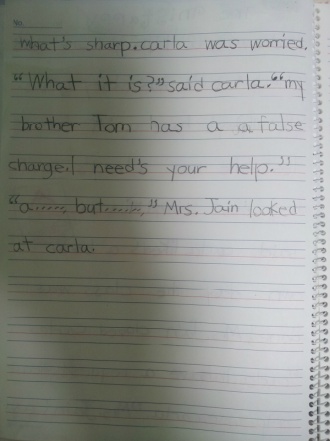 No.
what's sharp.carla was worried.
"What it is?" said carla." "my
brother Tom has a a false
charge.I need's your help."
"a......, but......," Mrs. Jain looked
at carla.